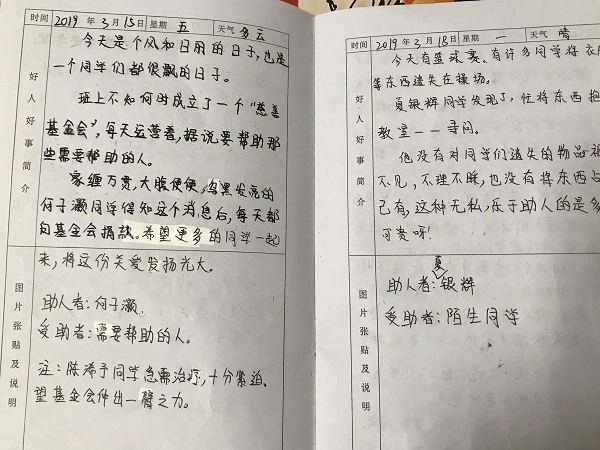 时间 2019 年 3 月 15 日 星期 五 天气 多云
好人好事简介
今天是个风和日丽的日子,也是
一个同学们都很飘的日子。
班上不知何时成立了一个“慈善
基金会”,每天运营着,据说要帮助那
些需要帮助的人。
家缠万贯,大腹便便,黑发亮的
何子灏同学得知这个消息后,每天都
向基金会捐款。希望更多的同学一起
来,将这份关爱发扬光大。
图片张贴及说明
助人者:何子灏.
受助者:需要帮助的人。
注:陈泽予同学急需治疗,十分紧迫.
望基金会伸出一臂之力。
时间 2019 年 3 月 18 日 星期 一 天气 晴
好人好事简介
今天有篮球赛.有许多同学将衣
等东西遗失在操场。
夏银辉同学发现了,忙将东西抱
教室一一寻问。
他没有对同学们遗失的物品视
不见,不理不睬,也没有将东西占
己有,这种无私,乐于助人的是多
可贵呀!
图片张贴及说明
助人者:夏银辉
受助者:陌生同学